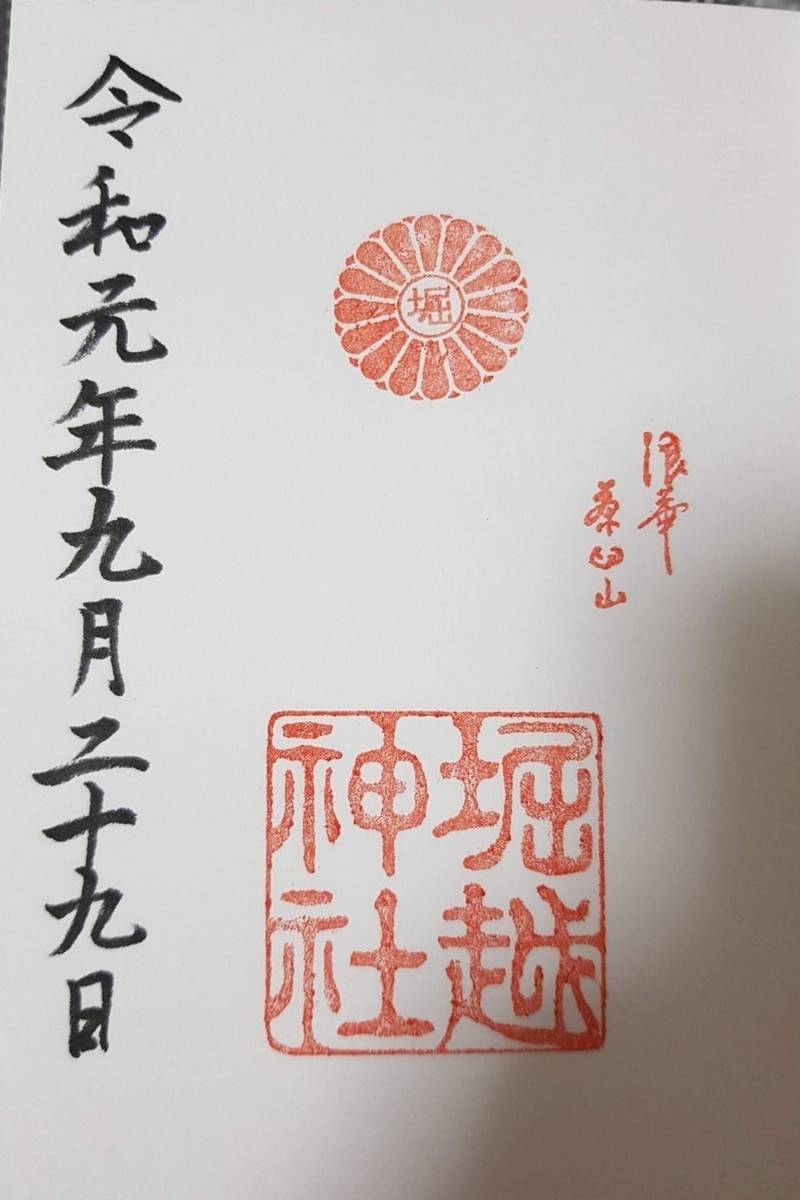 堀
浪華
茶臼山
堀越
神社
令和元年九月二十九日